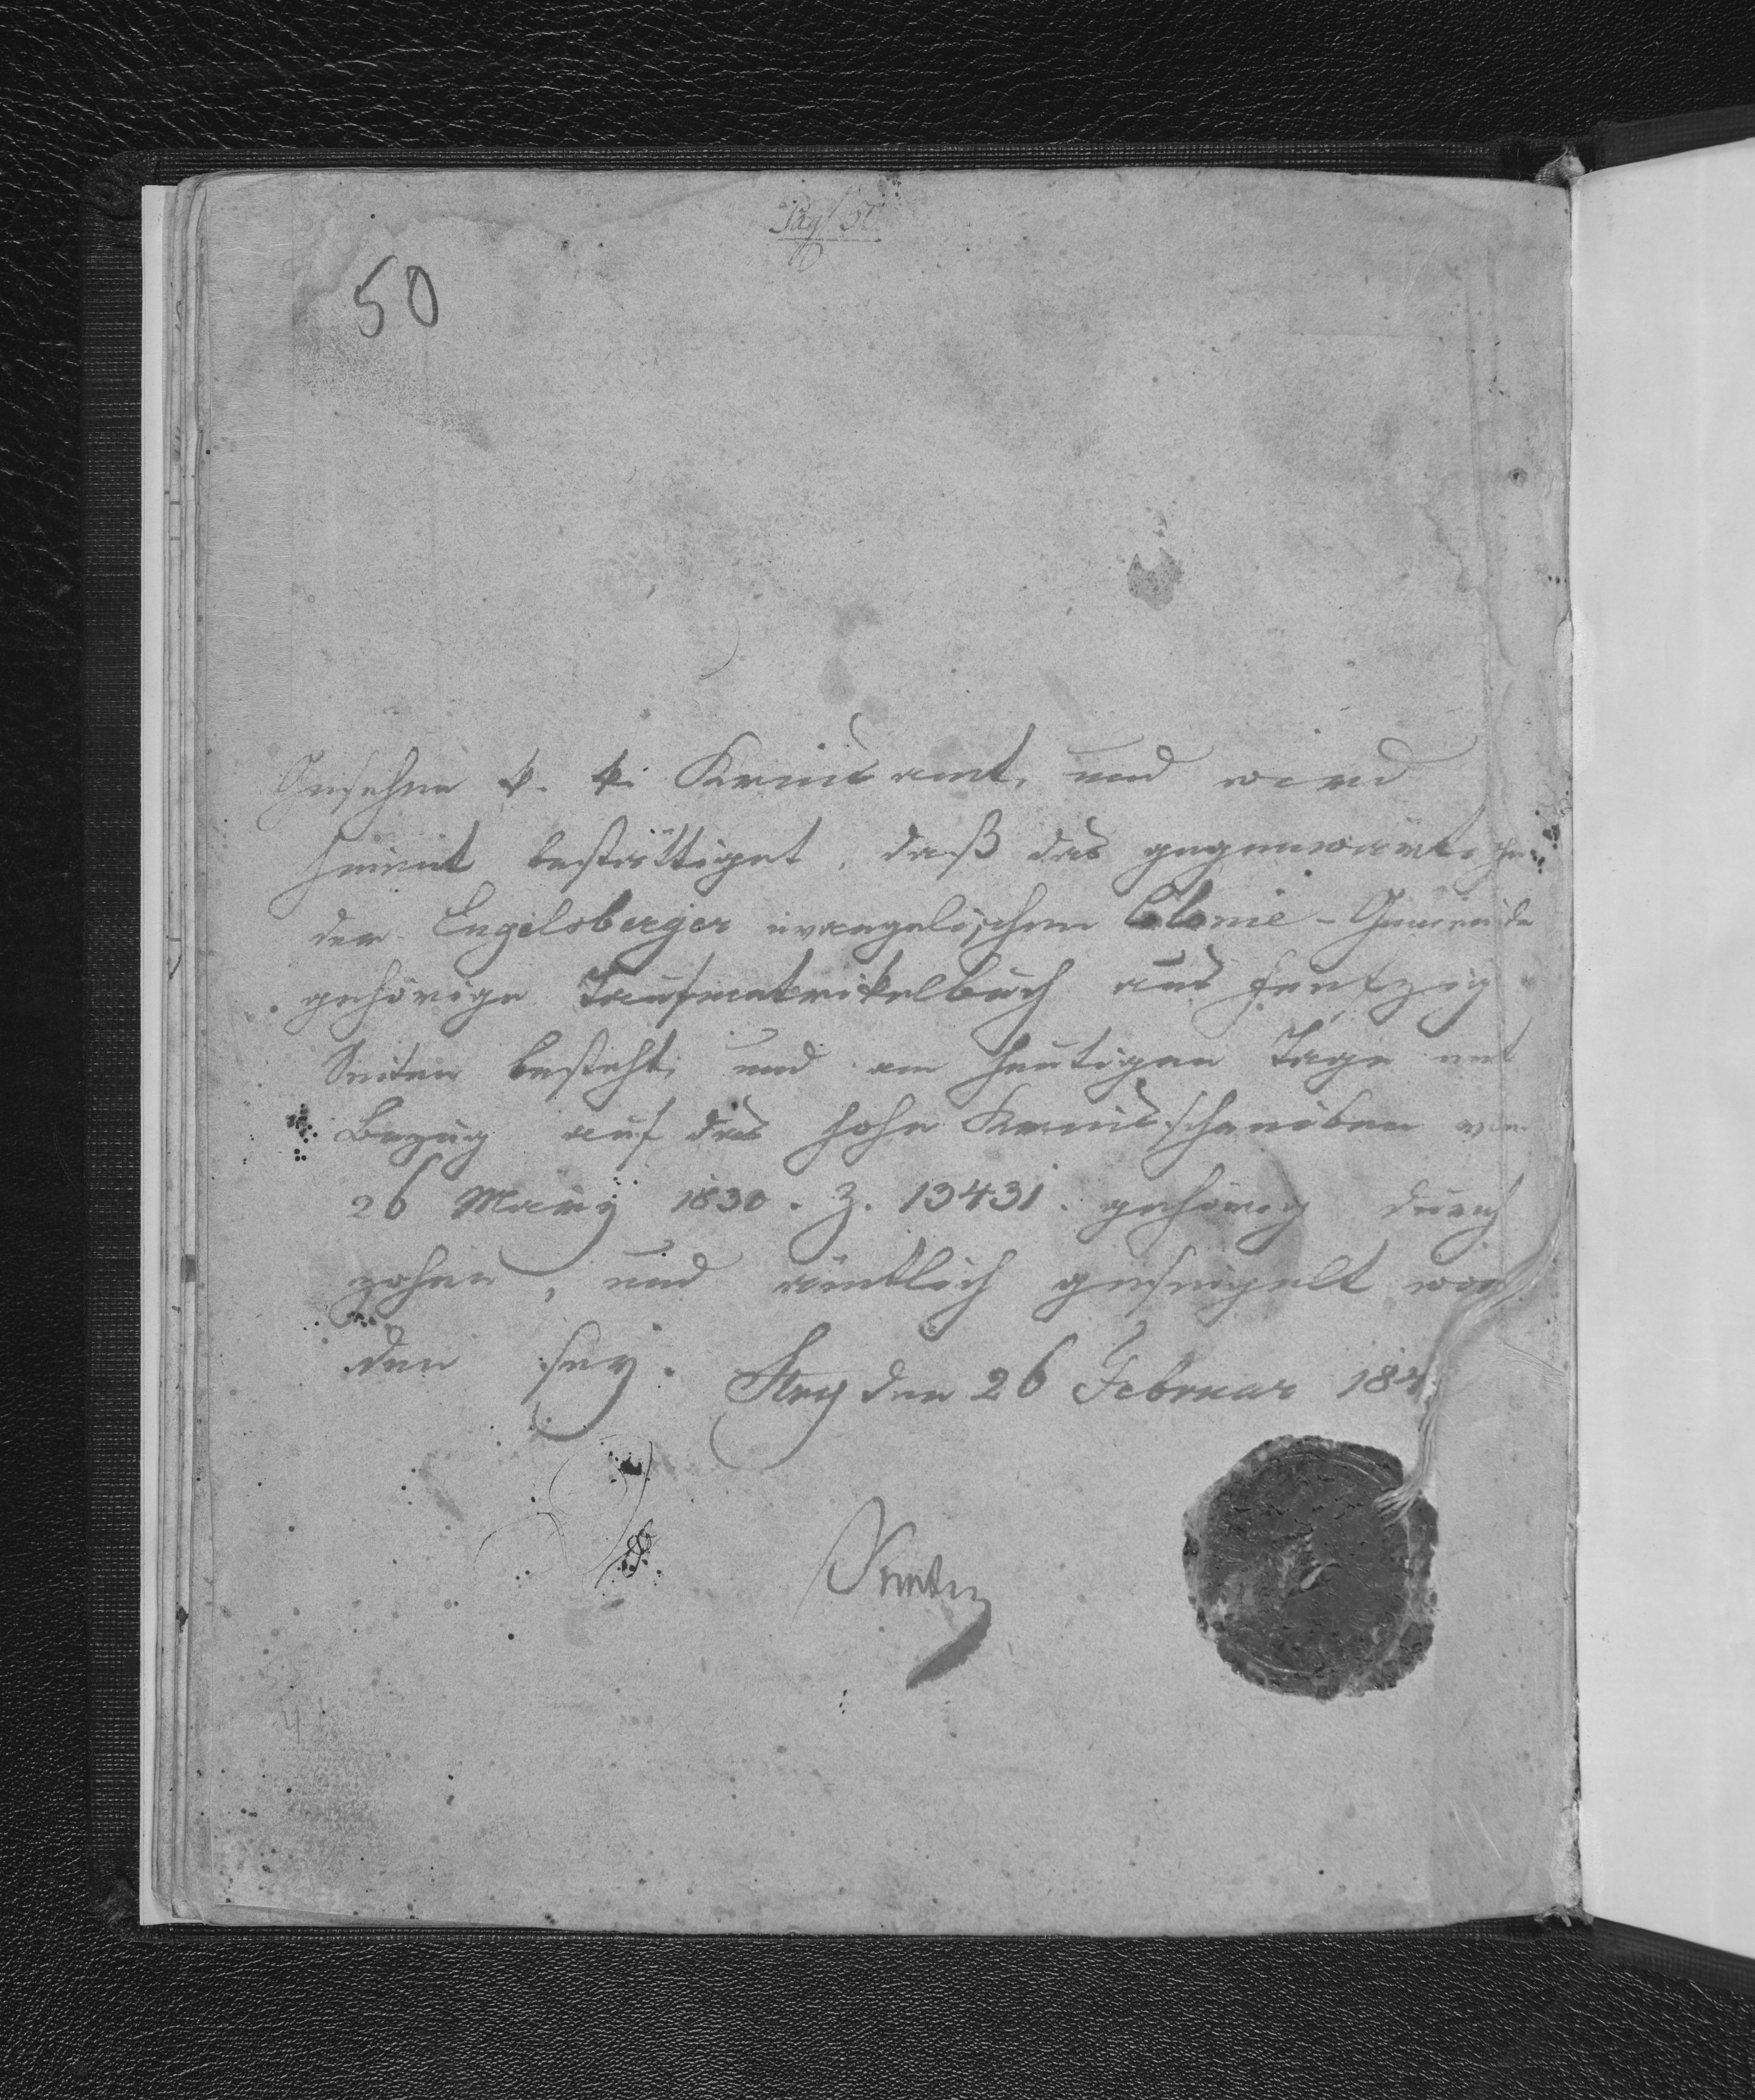 Pag. 50
50
Gesehen k. k. Kreisamt, und wird
hiemit bestättiget, daß das gegenwärtige
der Engelsberger evangelischen Colonie-Gemeinde
gehörige Taufmatrikelbuch aus funfzig
Seiten besteht, und am heutigen Tage mit
Bezug auf das hohe Kreisschreiben vom
26 März 1830. Z. 13431. gehörig durch
zohen, und ämtlich gesiegelt wor
den sey. Stry den 26 Februar